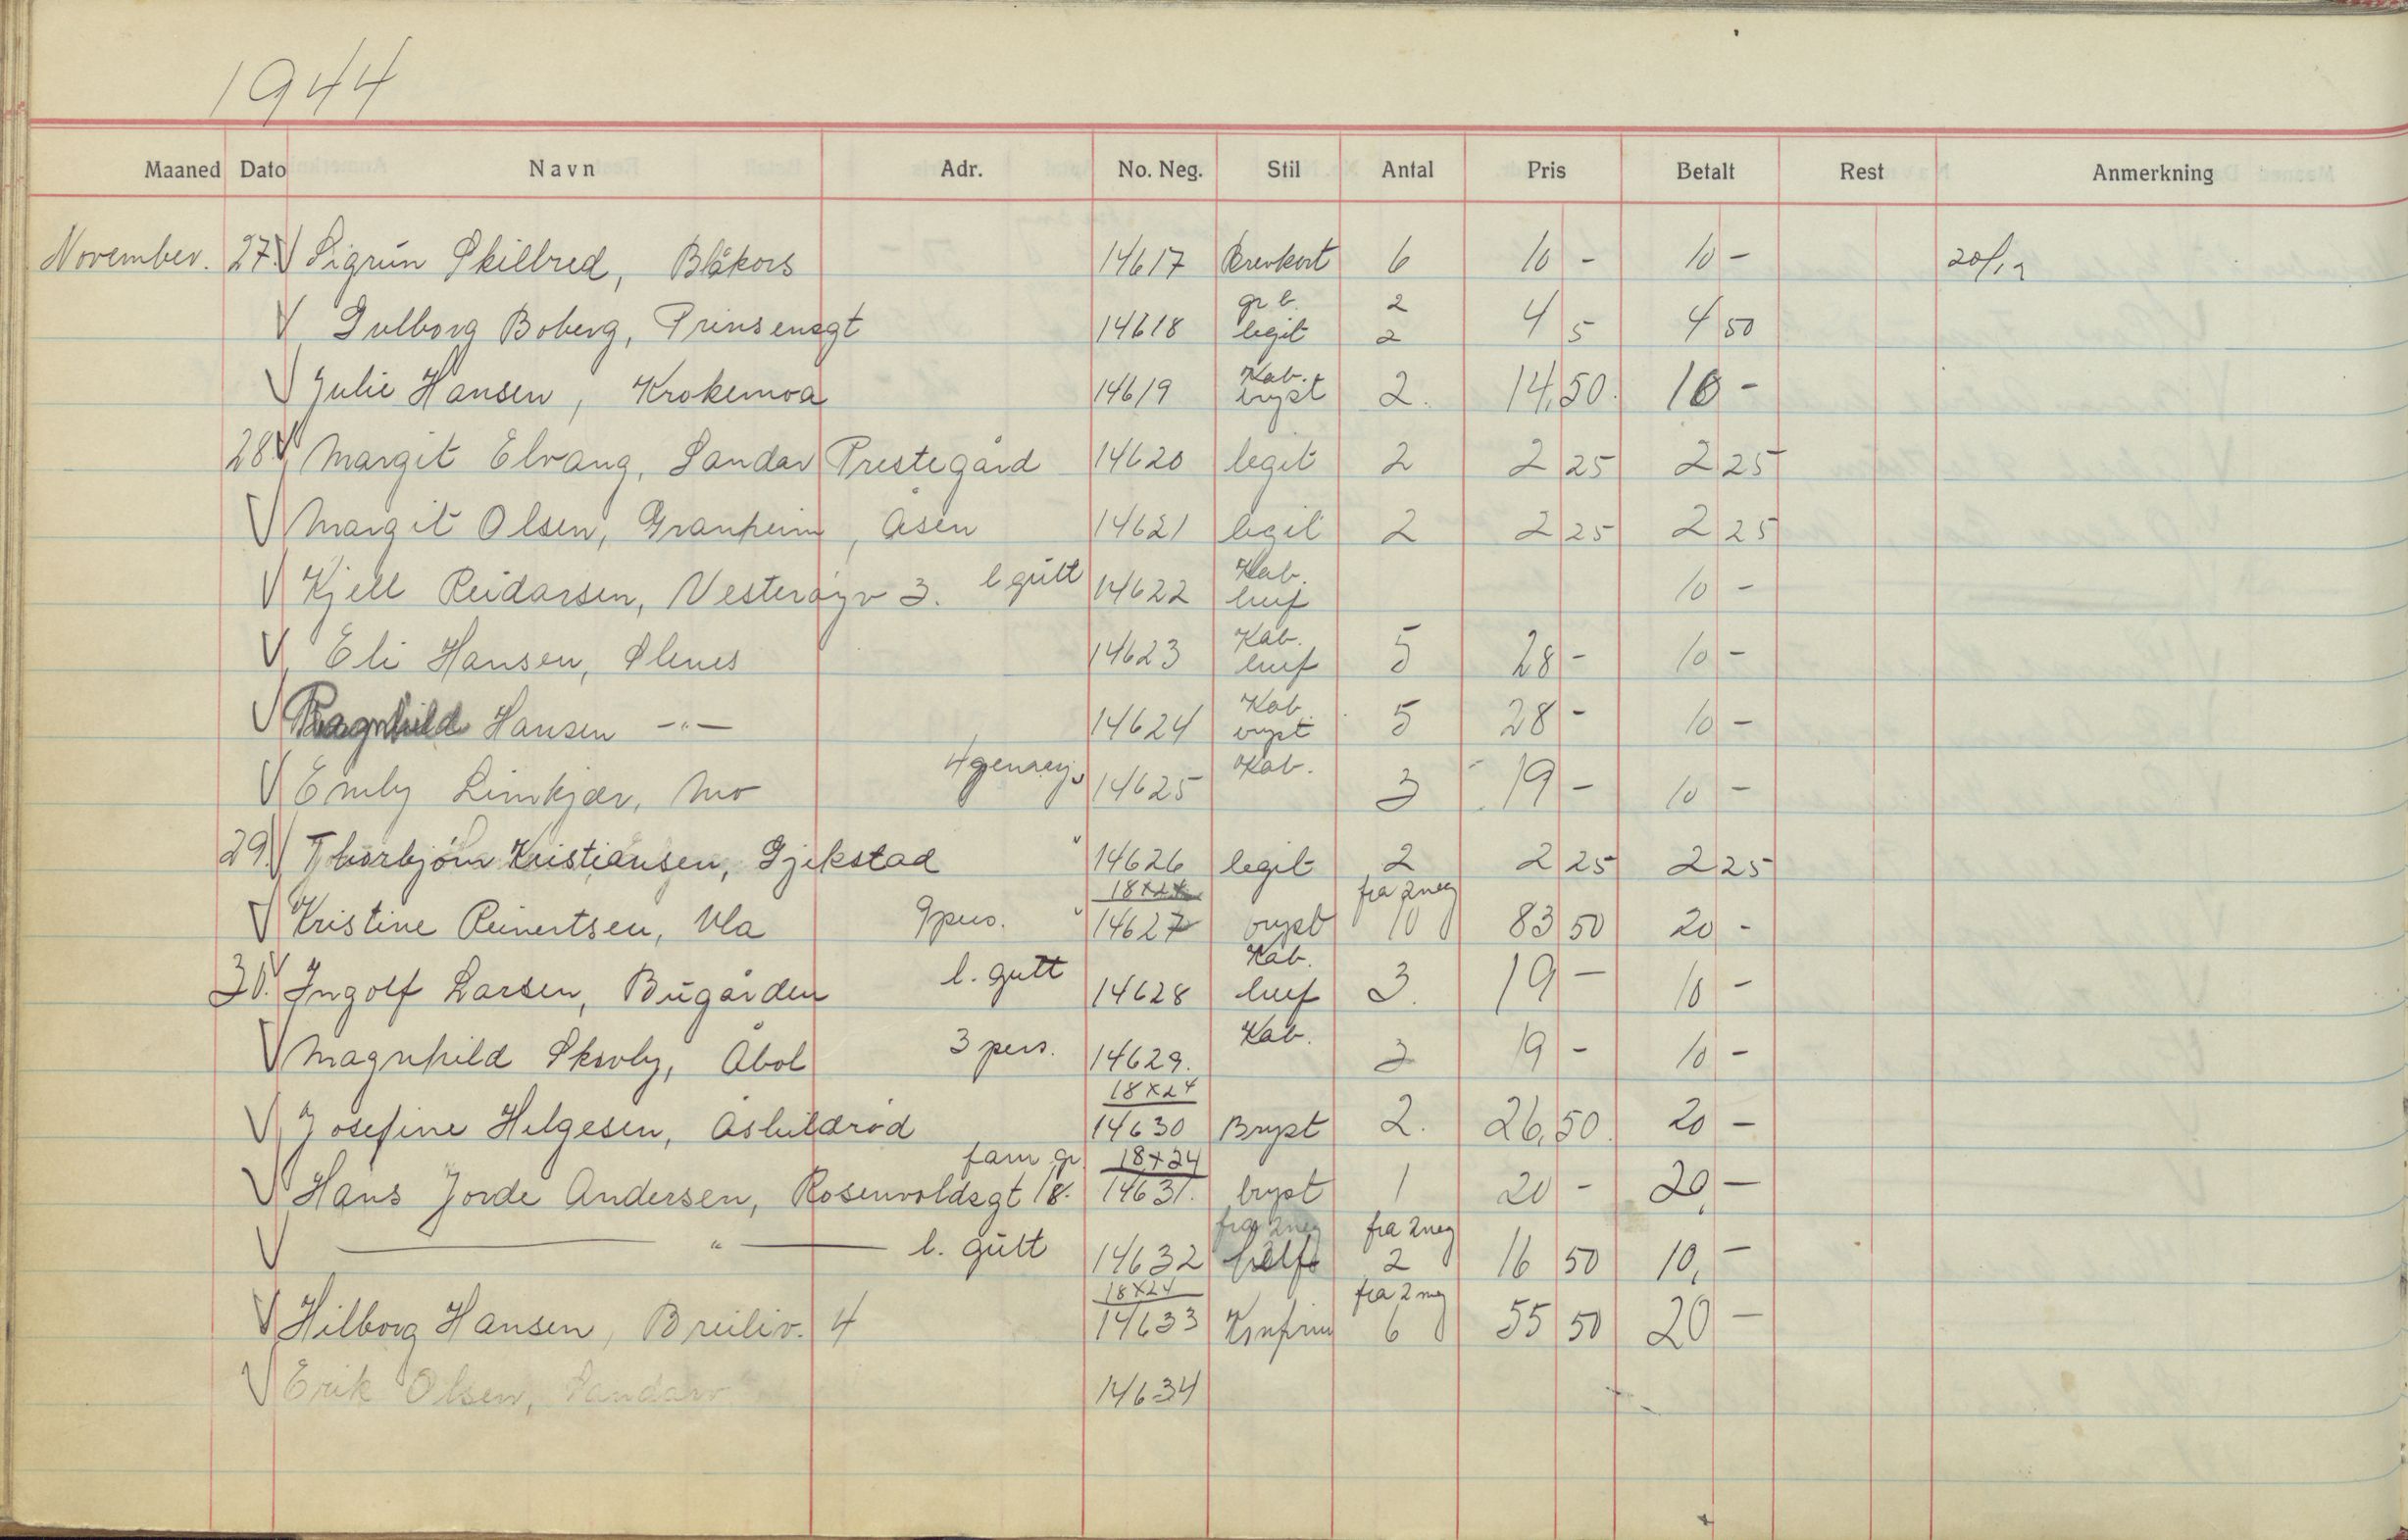 1944
Maaned Dato Navn Adr. No. Neg. Stil Antal Pris Betalt Rest Anmerkning
November. 27. V Sigrun Skilbred, Blåkors 14617 Brevkort 6 10 - 10 - 20/12
gr b. 2
V Gulborg Boberg, Prinsensgt 14618 legit 2 4 5 4 50
Kab.
V Julie Hansen, Krokemoa 14619 bryst 2. 14,50. 10 -
28 V Margit Elvang, Sandar Prestegård 14620 legit 2 2 25 2 25
V Margit Olsen, Granheim, Åsen 14621 legit 2 2 25 2 25
Kab.
V Kjell Reidarsen, Vesterøyv 3. l gutt 14622 10 -
Kab.
V Eli Hansen, 14623 5 28 - 10 -
Kab
V Ragnhild Hansen -"- 14624 bryst 5 28 - 10 -
Kab.
V Emly Linkjær, Mo 14625 3 19 - 10 -
29. V Thorbjørn Kristiansen, Gjekstad " 14626 legit 2 2 25 2 25
18x24 fra 2 neg
V Kristine Reinertsen, Vla 9 pers. " 14627 bryst 10 83 50 20 -
Kab.
30. V Ingolf Larsen, Bugården l. gutt 14628 3. 19 - 10 -
Kab.
V Magnhild Skovly, Åbol 3 pers. 14629. 3 19 - 10 -
18x24
V Josefine Helgesen, Åshildrød 14630 Bryst 2. 26,50. 20 -
fam gr 18x24
V Hans Jorde Andersen, Rosenvoldsgt 18. 14631. bryst 1 20 - 20, -
fra 2 neg fra 2 neg
V — " — l. gutt 14632 2 16 50 10, -
18x24 fra 2 neg
V Hilborg Hansen, Breiliv. 4 14633 Konfirm 6 55 50 20 -
V Erik Olsen, 14634